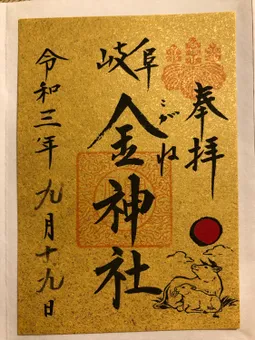 奉拝
岐阜
こがね
金神社
令和三年 九月十九日